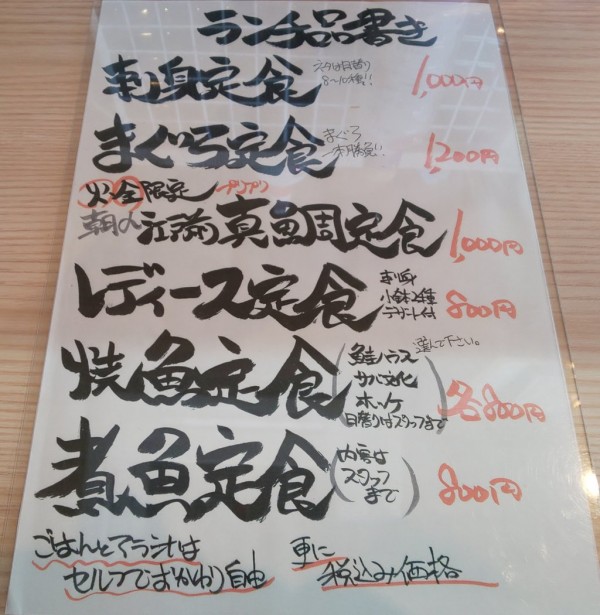 ランチ品書き
刺身定食 ネタは日替り 1,000円
8~10種!!
まぐろ定食 まぐろ 1,200円
一本勝負!
火・金限定 プリプリ
朝〆 活〆 真鯛定食 1,000円
レディース定食 刺身 800円
小鉢2種
デザート付
焼魚定食 (鮭ハラス 選んで下さい。 各800円
サバ文化
ホッケ
日替りはスタッフまで)
煮魚定食 (内容は 800円
スタッフ
まで)
ごはんとアラ汁は 更に
セルフでおかわり自由 税込み価格